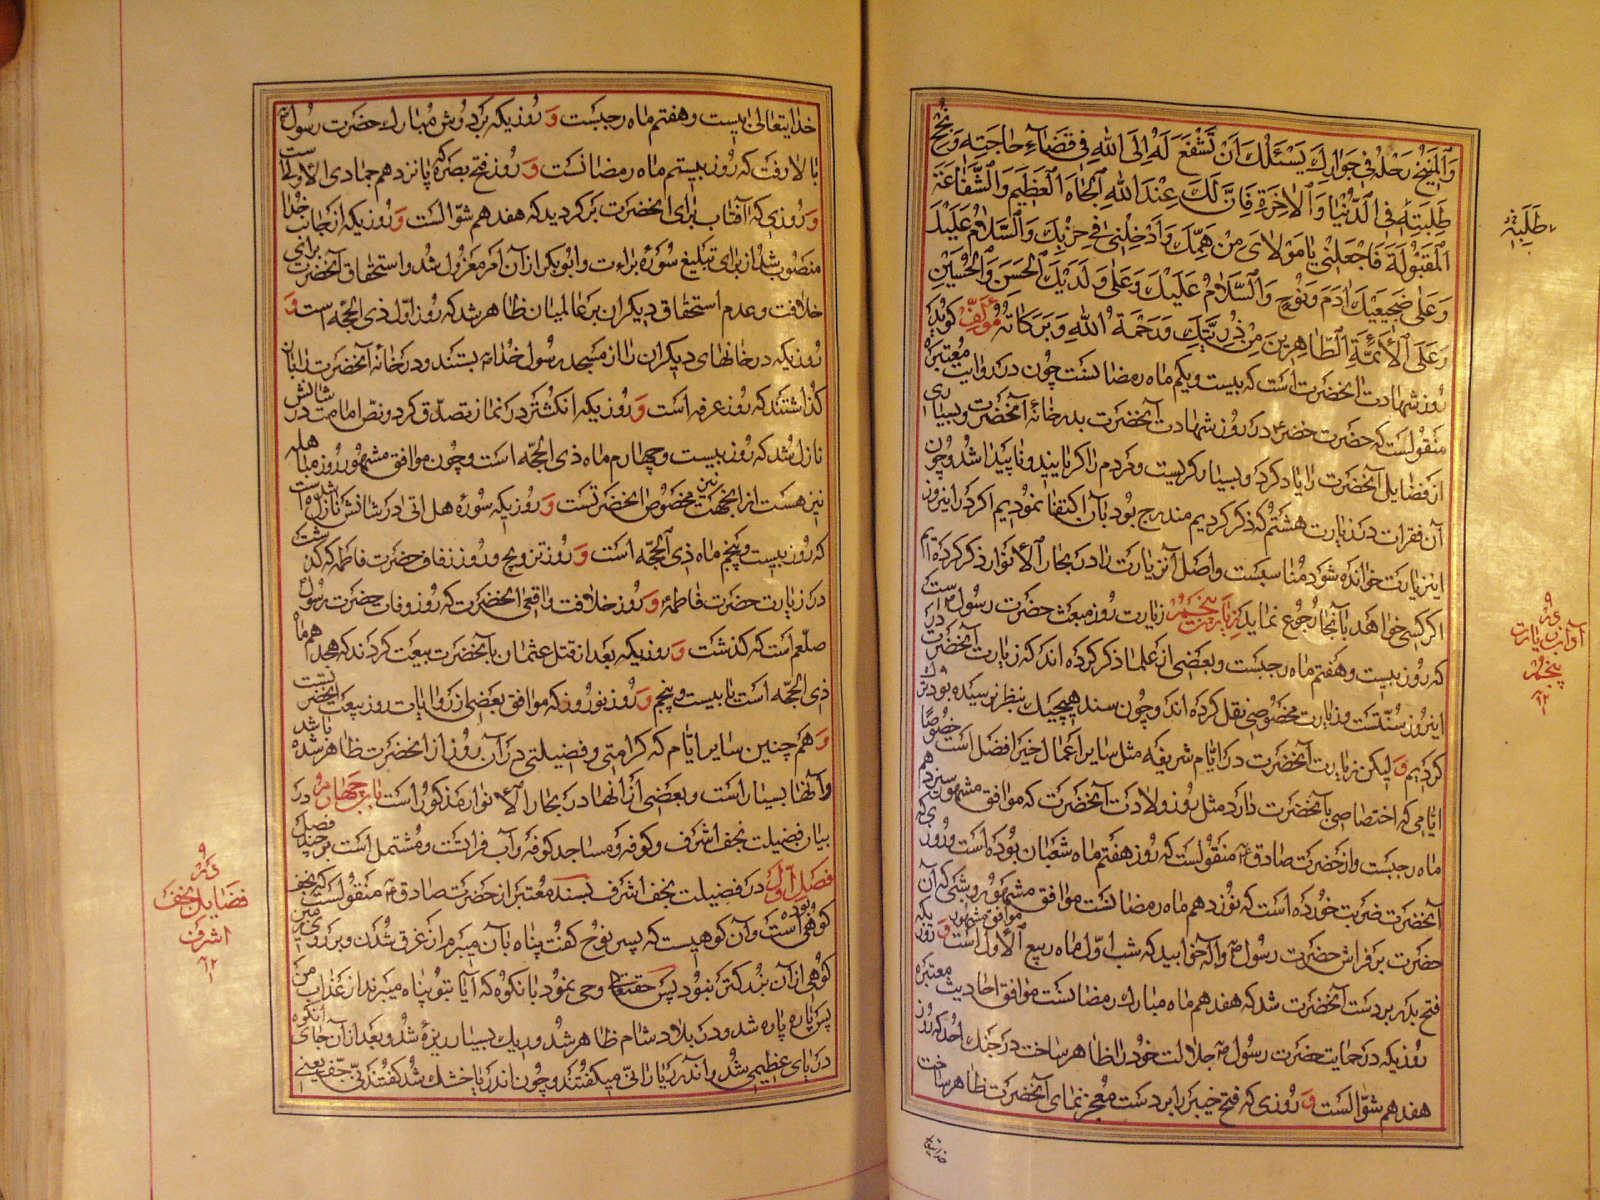 وَالْمُنِيخُ رَحْلَهُ فِي جَوَارِكَ يَسْئَلُكَ اَنْ تَشْفَعَ لَهُ اِلَى اللهِ فِي قَضَاءِ حَاجَتِهِ وَنُجْحِ
طَلِبَتِهِ فِي الدُّنْيَا وَالْاٰخِرَةِ فَاِنَّ لَكَ عِنْدَ اللهِ الْجَاهَ الْعَظِيمَ وَالشَّفَاعَةَ
الْمَقْبُولَةَ فَاجْعَلْنِي يَا مَوْلَايَ مِنْ هَمِّكَ وَاَدْخِلْنِي فِي حِزْبِكَ وَالسَّلَامُ عَلَيْكَ
وَعَلٰى ضَجِيعَيْكَ اٰدَمَ وَنُوحٍ وَالسَّلَامُ عَلَيْكَ وَعَلٰى وَلَدَيْكَ الْحَسَنِ وَالْحُسَيْنِ
وَعَلَى الْاَئِمَّةِ الطَّاهِرِينَ مِنْ ذُرِّيَّتِكَ وَرَحْمَةُ اللهِ وَبَرَكَاتُهُ مؤلف گوید
روز شهادت آنحضرت است که بیست و یکم ماه رمضانست چون در روایت معتبره
منقولست که حضرت خضر ع در روز شهادت آنحضرت بدر خانهٔ آنحضرت و بسیاری
از فضایل آنحضرت را یاد کرد و بسیار گریست و مردم را گریانید و ناپیدا شد و چون
آن فقرات در زیارت هشتم که ذکر کردیم مندرج بود بآن اکتفا نمودیم اگر در اینروز
این زیارت خوانده شود مناسبست و اصل آن زیارت را در بحار الانوار ذکر کرده ایم
اگر کسی خواهد بآنجا رجوع نماید زیارت پنجم زیارت روز مبعث حضرت رسول ص است
که روز بیست و هفتم ماه رجبست و بعضی از علما ذکر کرده اند که زیارت آنحضرت در
اینروز سنّتست و زیارت مخصوصی نقل کرده اند و چون سند هیچیک بنظر نرسیده بود
کردیم و لیکن زیارت آنحضرت در ایّام شریفه مثل سایر اعمال خیر افضل است خصوصاً
ایّامی که اختصاصی بآنحضرت دارد مثل روز ولادت آنحضرت که موافق مشهور سیزدهم
ماه رجبست و از حضرت صادق ع منقولست که روز هفتم ماه شعبان بوده است و روزی که
آنحضرت ضربت خورده است که نوزدهم ماه رمضانست موافق مشهور و شبی که آن
حضرت بر فراش حضرت رسول ص واله خوابید که شب اوّل ماه ربیع الاول است موافق مشهور و روزیکه
فتح بدر بر دست آنحضرت شد که هفدهم ماه مبارک رمضانست موافق احادیث معتبره
روزیکه در حمایت حضرت رسول ص جلالت خود را ظاهر ساخت در جنک احد که روز
هفدهم شوّالست و روزی که فتح خیبر را بر دست معجز نمای آنحضرت ظاهر ساخت
خدایتعالی
طَلِبَتِهِ
در آداب زیارت پنجم
خدایتعالی بیست و هفتم ماه رجبست و روزیکه بر دوش مبارک حضرت رسول ص
بالا رفت که روز بیستم ماه رمضانست و روز فتح بصره که پانزدهم جمادی الاولی است
و روزی که آفتاب برای آنحضرت برگردید که هفدهم شوّالست و روزیکه از جانب خدا
منصوب شد از برای تبلیغ سورهٔ براءت و ابوبکر از آن امر معزول شد و استحقاق آنحضرت برای
خلافت و عدم استحقاق دیگران بر عالمیان ظاهر شد که روز اوّل ذی الحجّه است و
روزیکه در خانهای دیگران را از مسجد رسول خدا بستند و در خانهٔ آنحضرت را باز
گذاشتند که روز عرفه است و روزیکه انگشتر در نماز تصدّق کرد و نصّ امامت در شانش
نازل شد که روز بیست و چهارم ماه ذی الحجّه است و چون موافق مشهور روز مباهله
نیز هست از اینجهت نیز مخصوص آنحضرتست و روزیکه سوره هل اتی در شانش نازل شده است
که روز بیست و پنجم ماه ذی الحجّه است و روز تزویج و روز زفاف حضرت فاطمه که گذشت
در زیارت حضرت فاطمه و روز خلافت واقعی آنحضرت که روز وفات حضرت رسول
صلعم است که گذشت و روزیکه بعد از قتل عثمان با آنحضرت بیعت کردند که هجدهم ماه
ذی الحجّه است یا بیست و پنجم و روز نوروز که موافق بعضی از روایات روز بیعت آنحضرتست
و همچنین سایر ایّام که کرامتی و فضیلتی در آن روز از آنحضرت ظاهر شده باشد
و آنها بسیار است و بعضی از آنها در بحار الانوار مذکور است باب چهارم در
بیان فضیلت نجف اشرف و کوفه و مساجد کوفه و آب فراتست و مشتمل است بر چند فصل
فصل اوّل در فضیلت نجف اشرف بسند معتبر از حضرت صادق ع منقولست که نجف
کوهی بوده است و آن کوهیست که پسر نوح گفت پناه بآن میبرم از غرق شدن و بر روی زمین
کوهی از آن بزرگتر نبود پس حقتعالی وحی نمود بانکوه که آیا بتو پناه میبرند از عذاب من
پس پاره پاره شد و در بلاد شام ظاهر شد و ریک بسیار ریزهٔ شد و بعد از آن جای آنکوه
دریای عظیمی شد و آندریا را نی میگفتند و چون آندریا خشک شد گفتند نی جفّ یعنی
در فضایل نجف
اشرف